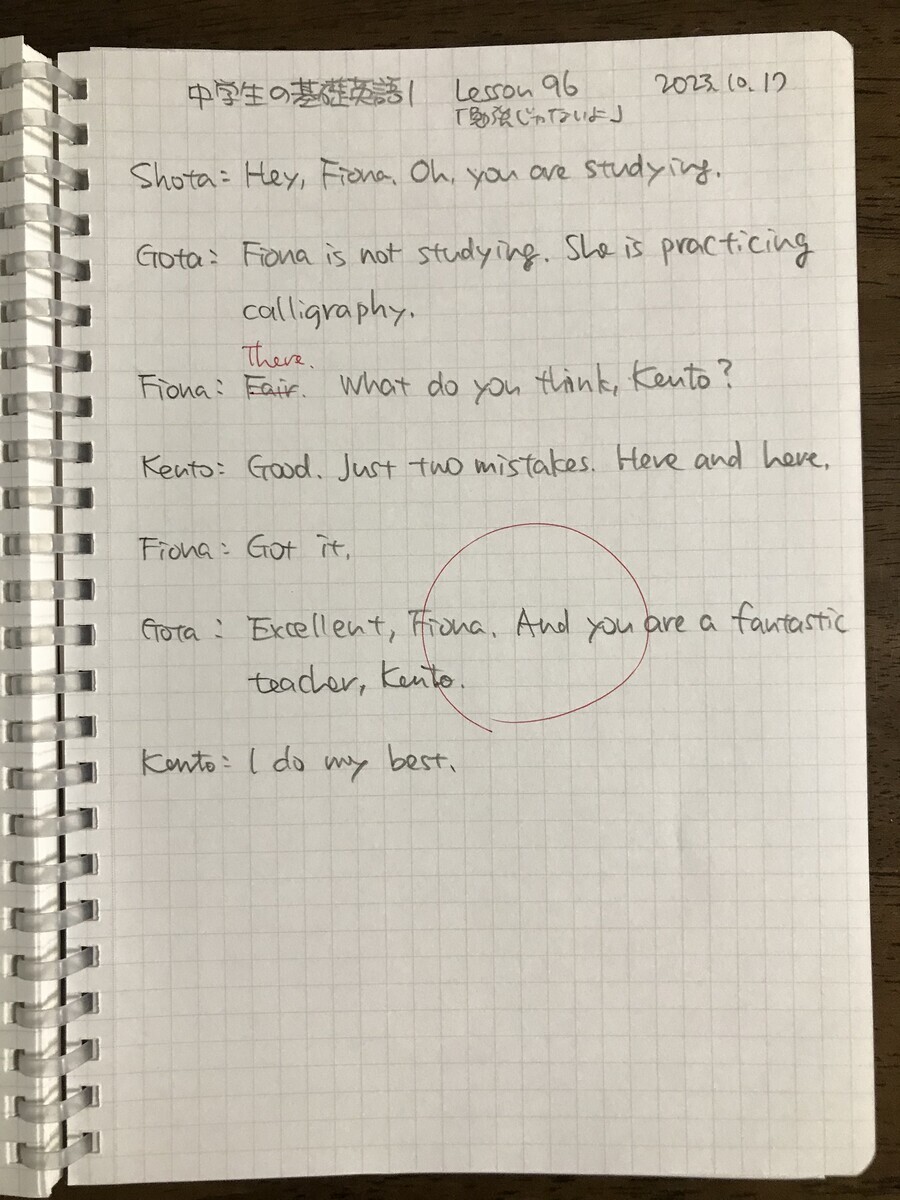 中学生の基礎英語1 Lesson 96 2023.10.17
「勉強じゃないよ」
Shota: Hey, Fiona. Oh, you are studying.
Gota: Fiona is not studying. She is practicing
calligraphy.
There.
Fiona: Fair. What do you think, Kento?
Kento: Good. Just two mistakes. Here and here.
Fiona: Got it.
Gota: Excellent, Fiona. And you are a fantastic
teacher, Kento.
Kento: I do my best.